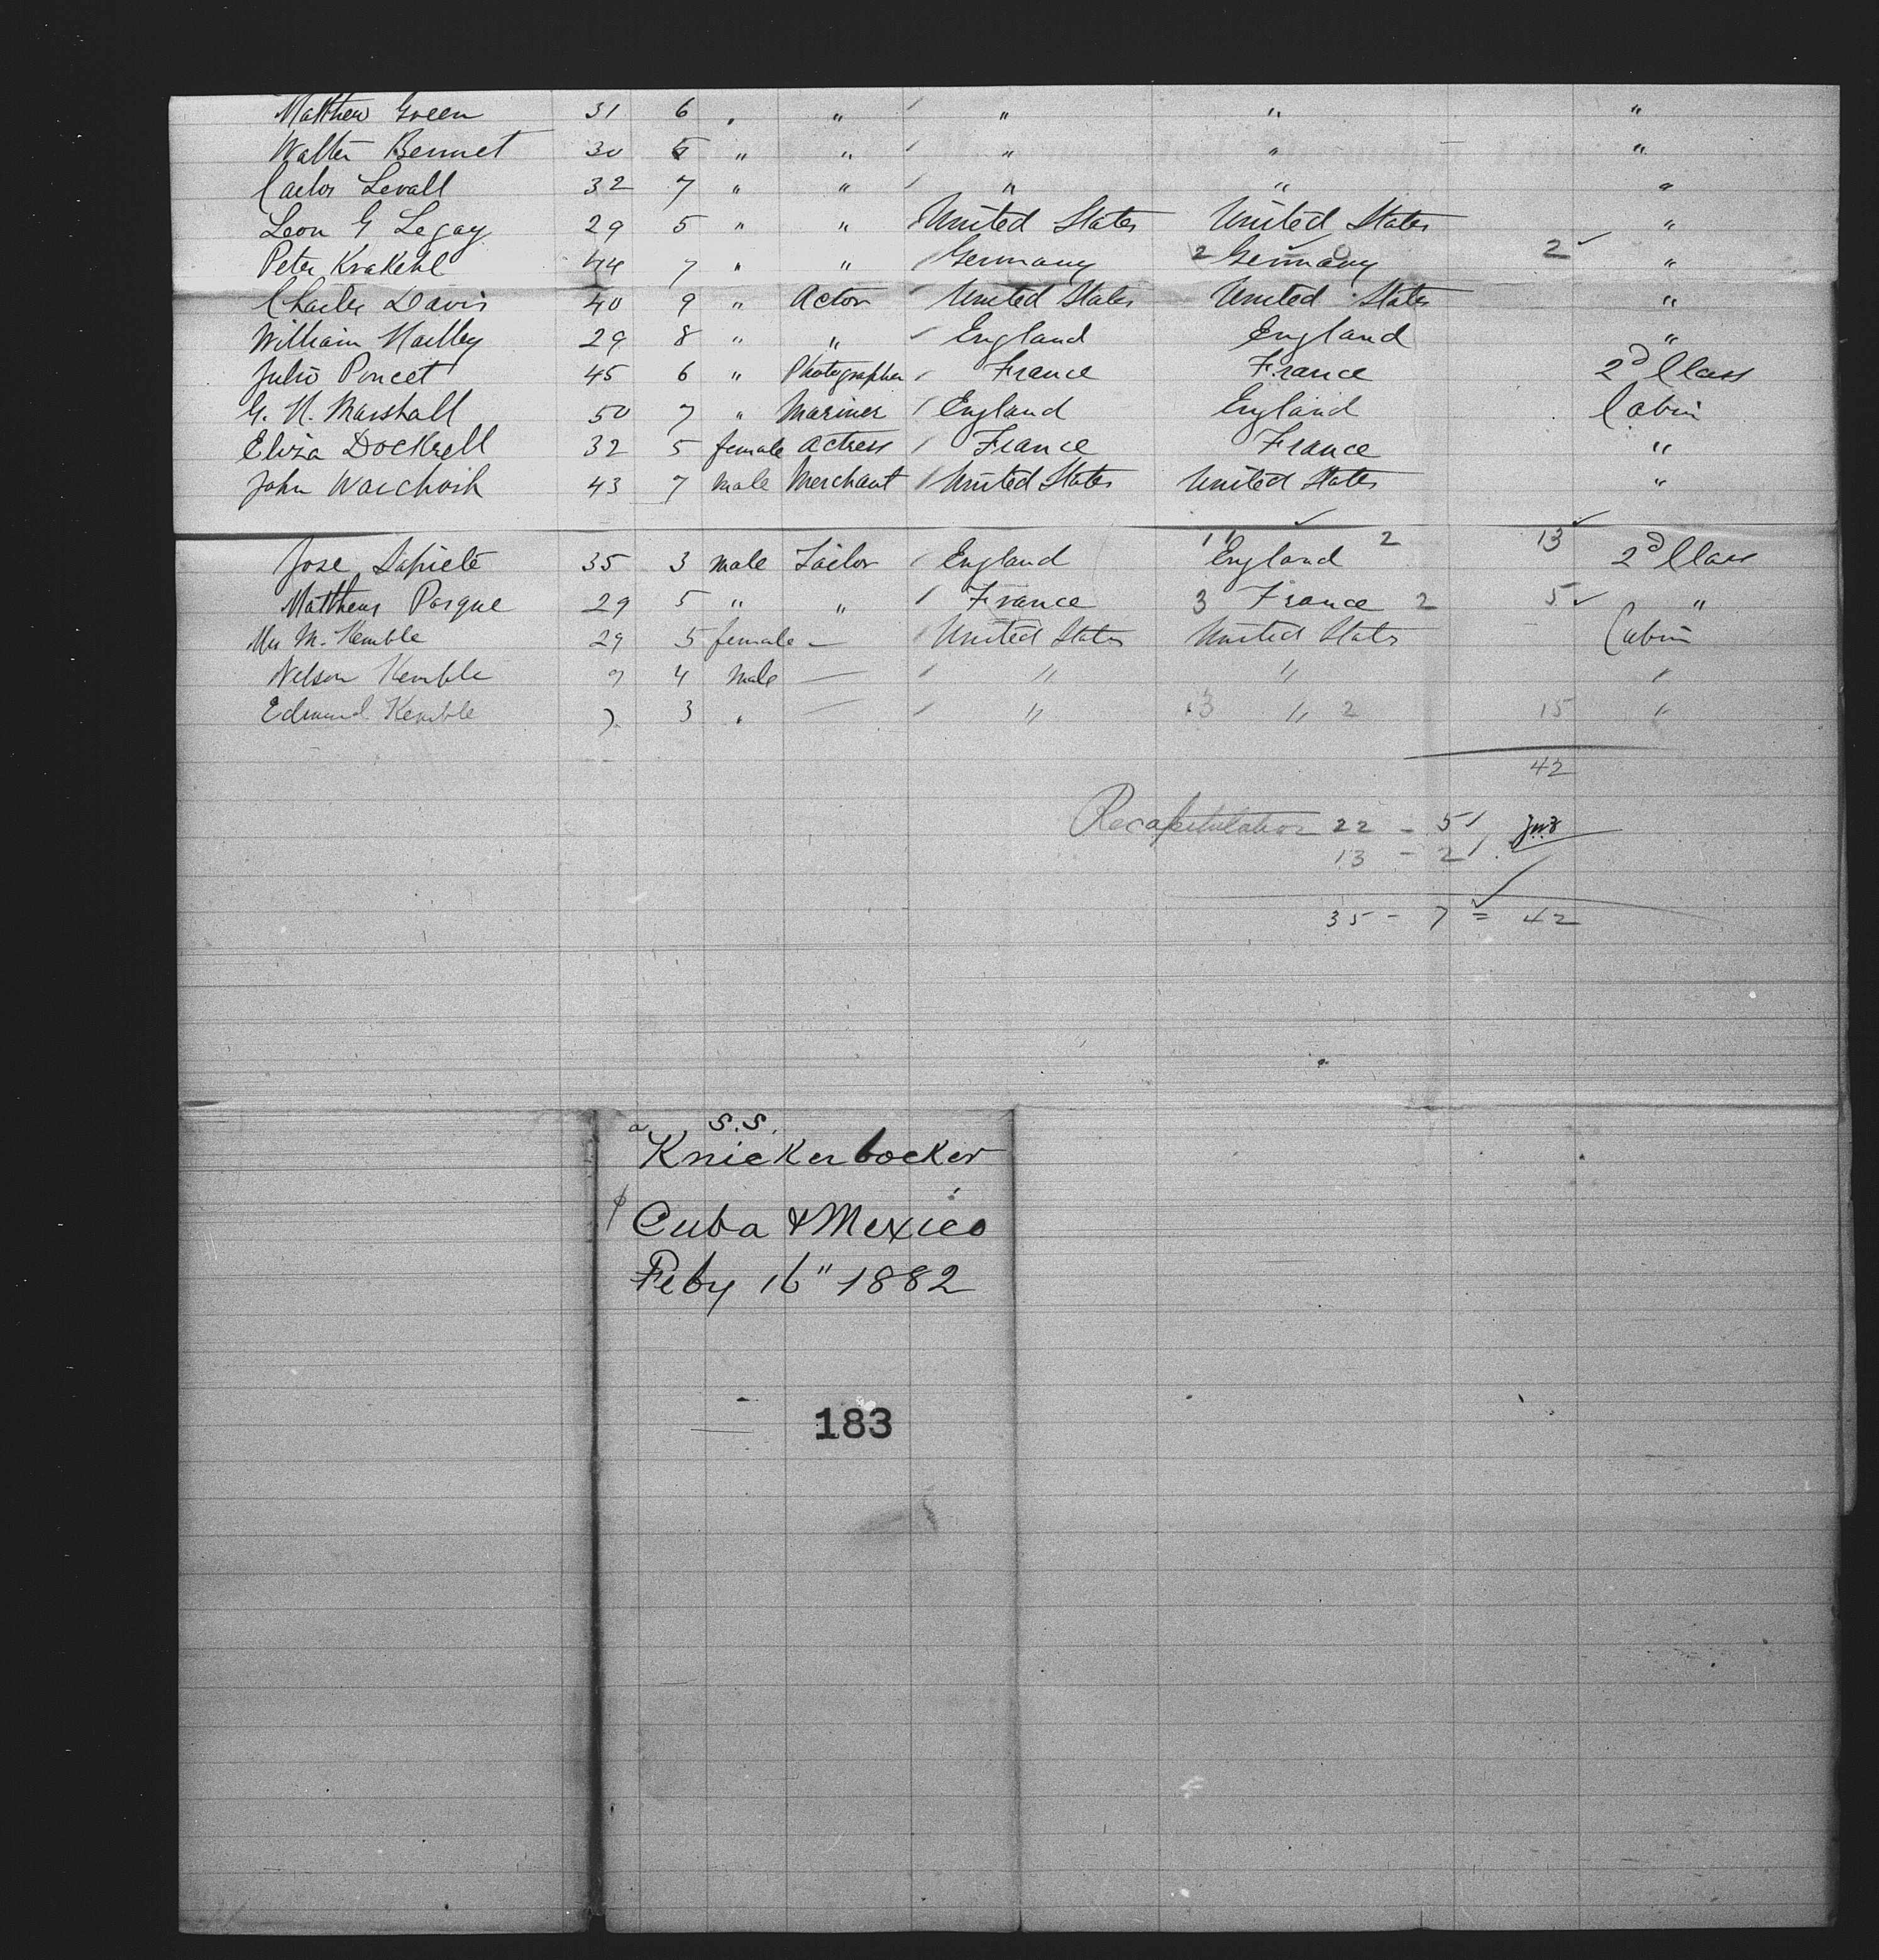 Matthew Green 31 6 " " / " " "
Walter Bennet 30 5 " " / " " "
Carlos Levall 32 7 " " / " " "
Leon G Legay 29 5 " " / United States United States "
Peter Krakehl 44 7 " " / Germany 2 Germany 2 ✓ "
Charles Davis 40 9 " Actor / United States United States "
William 29 8 " " / England England "
Julio Poncet 45 6 " Photographer / France France 2d Class
G. N. Marshall 50 7 " Mariner / England England Cabin
Eliza Dockrell 32 5 female Actress / France France "
John 43 7 male Merchant / United States United States "
Jose 35 3 male Tailor / England 11 England 2 13 ✓ 2d Class
Matthews Parque 29 5 " " / France 3 France 2 5 ✓ "
Mrs M. Kemble 29 5 female — / United States United States Cabin
Nelson Kemble 9 4 male — / " " "
Edmund Kemble 7 3 " — / " 13 " 2 15 "
42
Recapitulation 22 - 5 /
13 - 2 /
35 - 7 = 42
S.S.
Knickerbocker
Cuba & Mexico
Feby 16" 1882
183